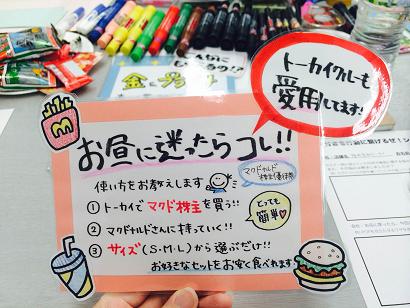 トーカイクルーも
愛用してます!
お昼に迷ったらコレ!!
マクドナルド
株主優待券
使い方をお教えします
① トーカイでマクド株主を買う!!
② マクドナルドさんに持っていく!!
③ サイズ(S・M・L)から選ぶだけ!!
お好きなセットをお安く食べれます
とっても
簡単